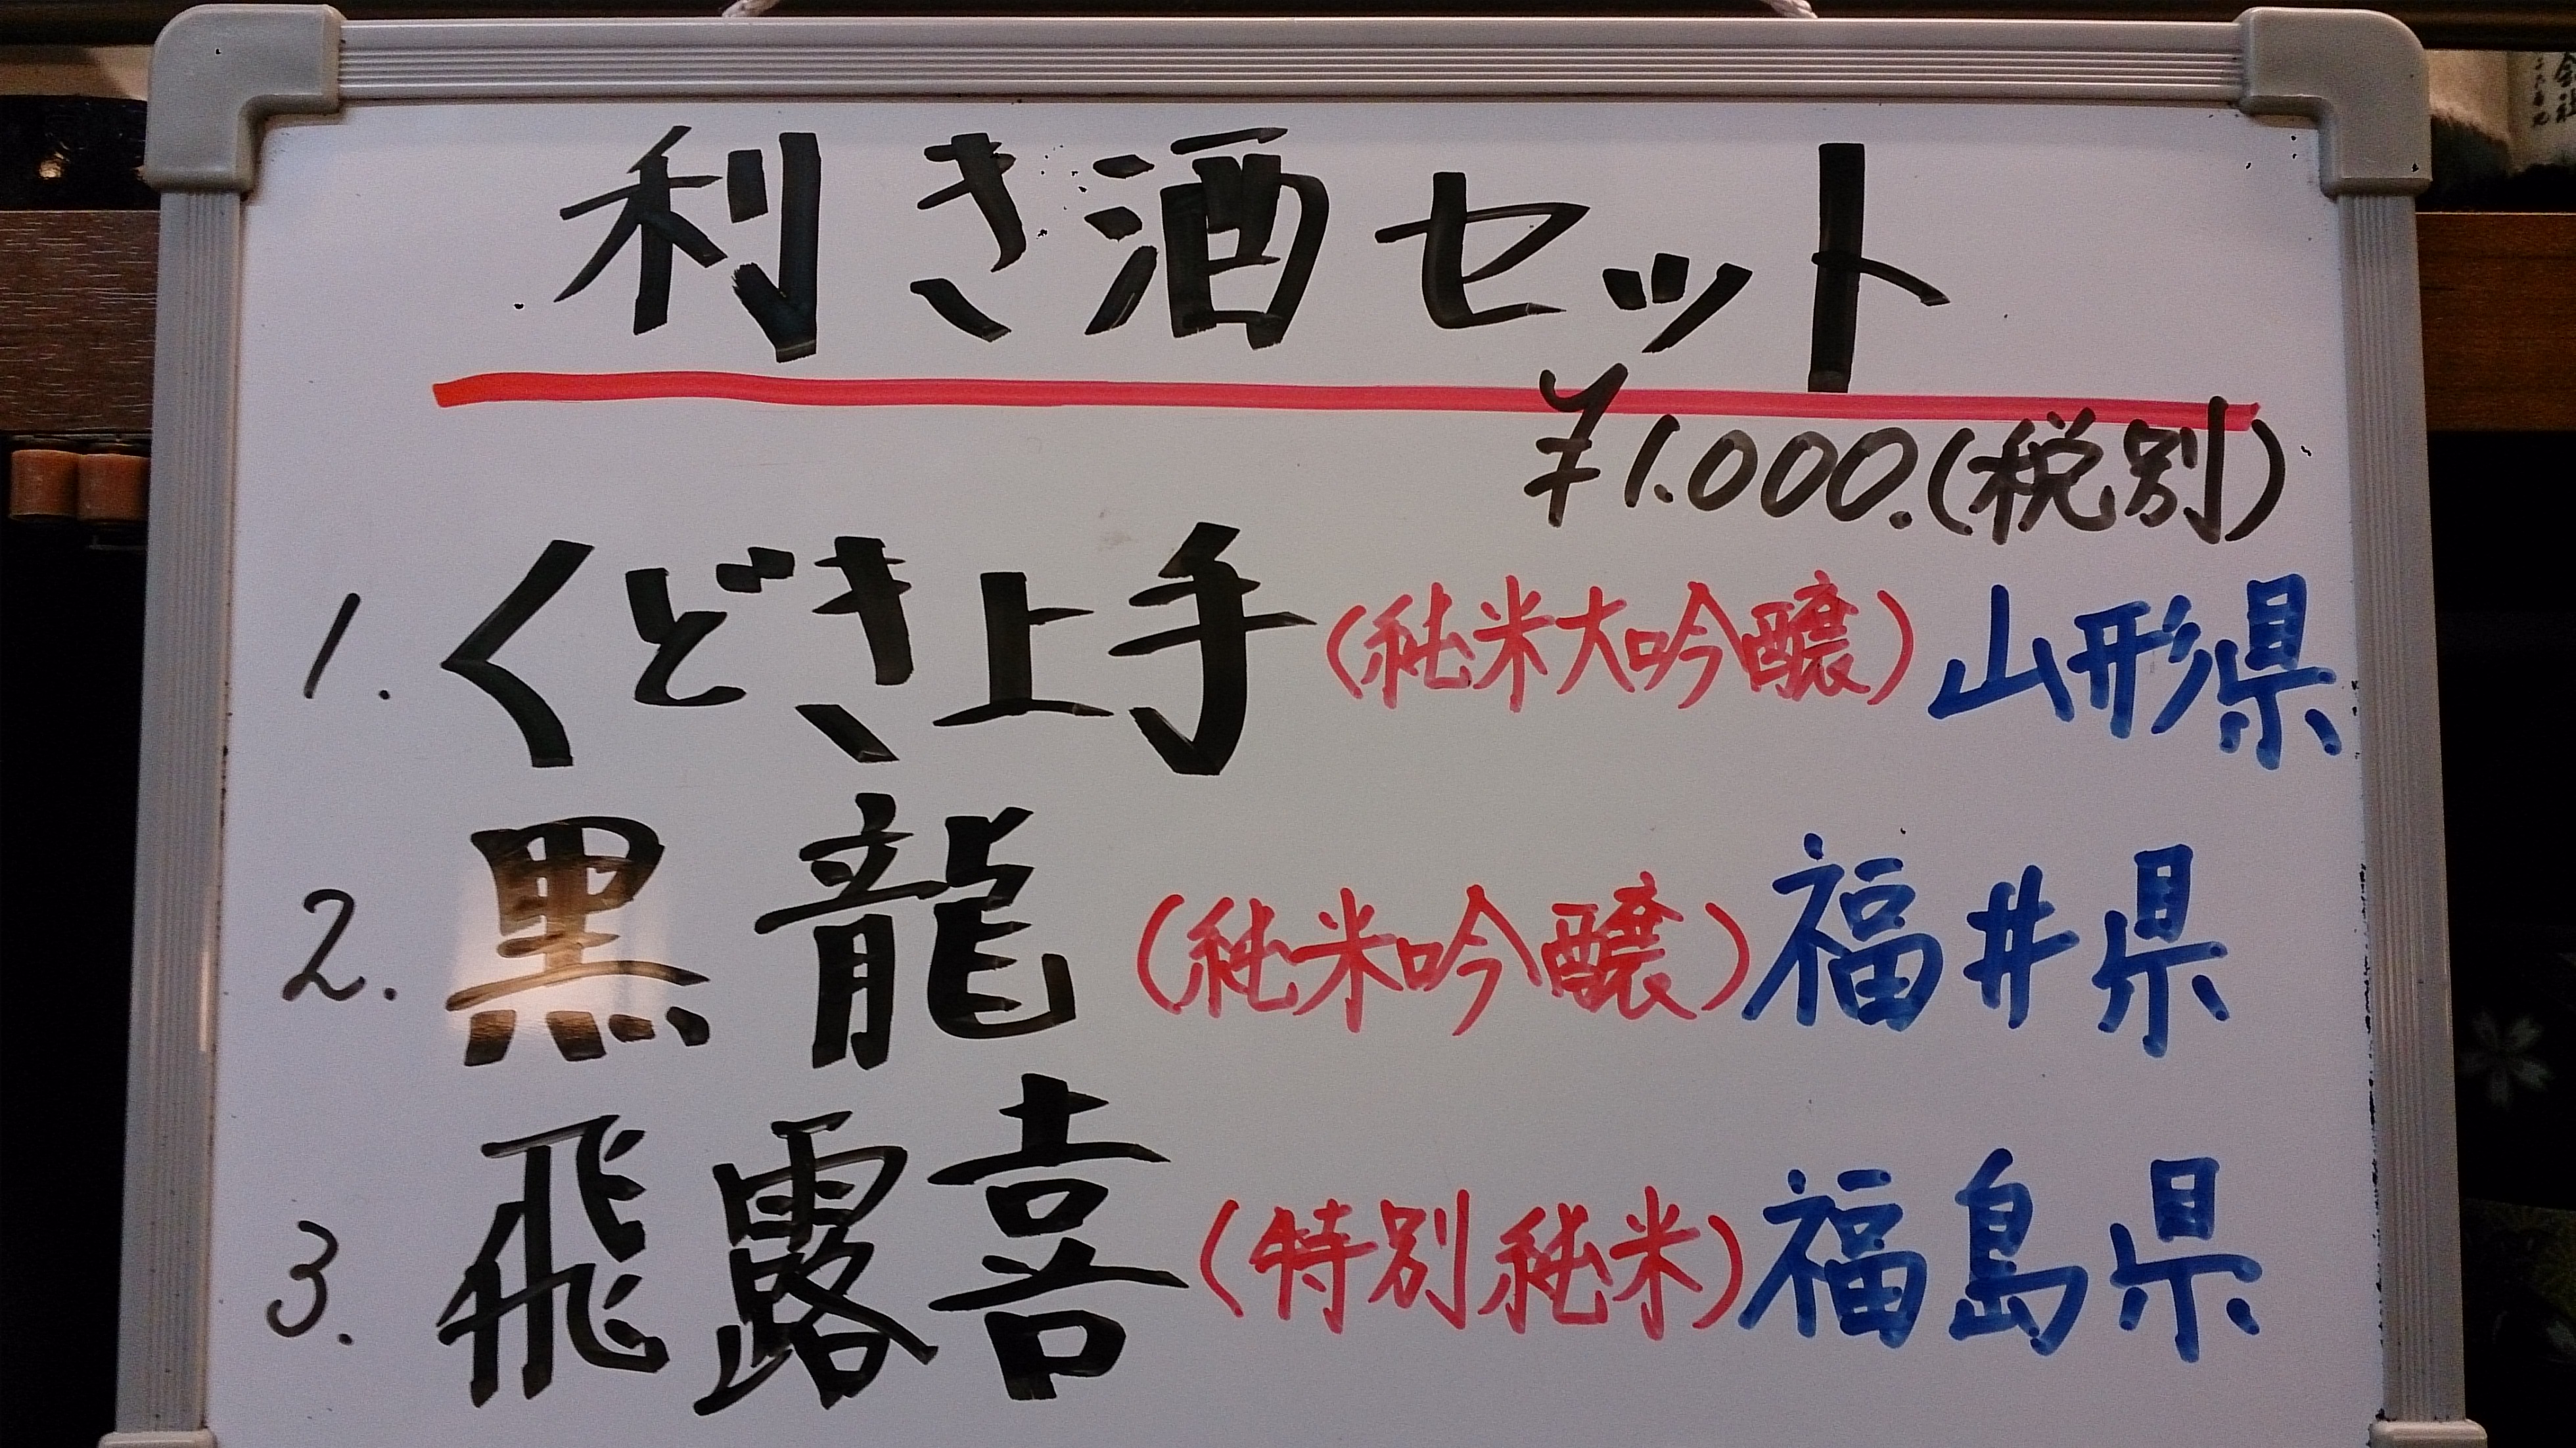 利き酒セット
¥1.000.(税別)
1. くどき上手 (純米大吟醸) 山形県
2. 黒龍 (純米吟醸) 福井県
3. 飛露喜 (特別純米) 福島県